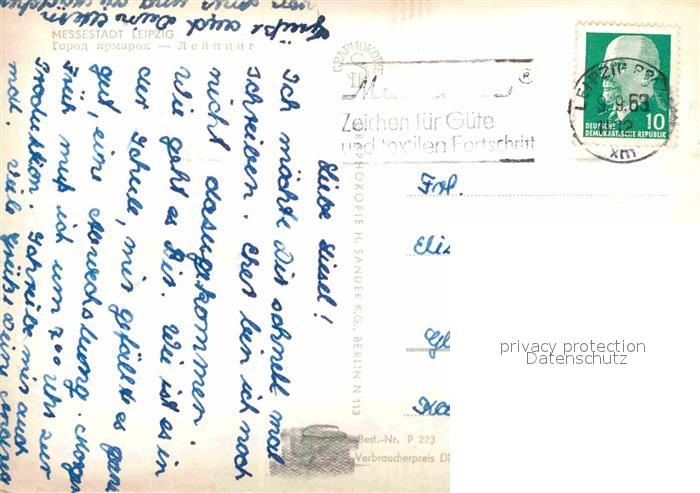 MESSESTADT LEIPZIG
Город ярмарок — Лейпциг
Liebe Liesel!
Ich möchte Dir schnell mal
schreiben. Eher bin ich noch
nicht dazugekommen.
Wie geht es Dir. Wie ist es in
der Schule, mir gefällt es ganz
gut, eine Abwechslung. Morgen
Früh muß ich um 7 00 Uhr zur
Produktion. Schreibe mir auch
mal. Viele Grüße Deine
Grüße auch Deine Eltern
von uns
GRAPHOKOPIE
Zeichen für Güte
und textilen Fortschritt
LEIPZIG
9.9.63
12
xm
10
DEUTSCHE
DEMOKRATISCHE REPUBLIK
GRAPHOKOPIE H. SANDER K.G., BERLIN N 113
Frl.
Best.-Nr. P 273
Verbraucherpreis
privacy protection
Datenschutz